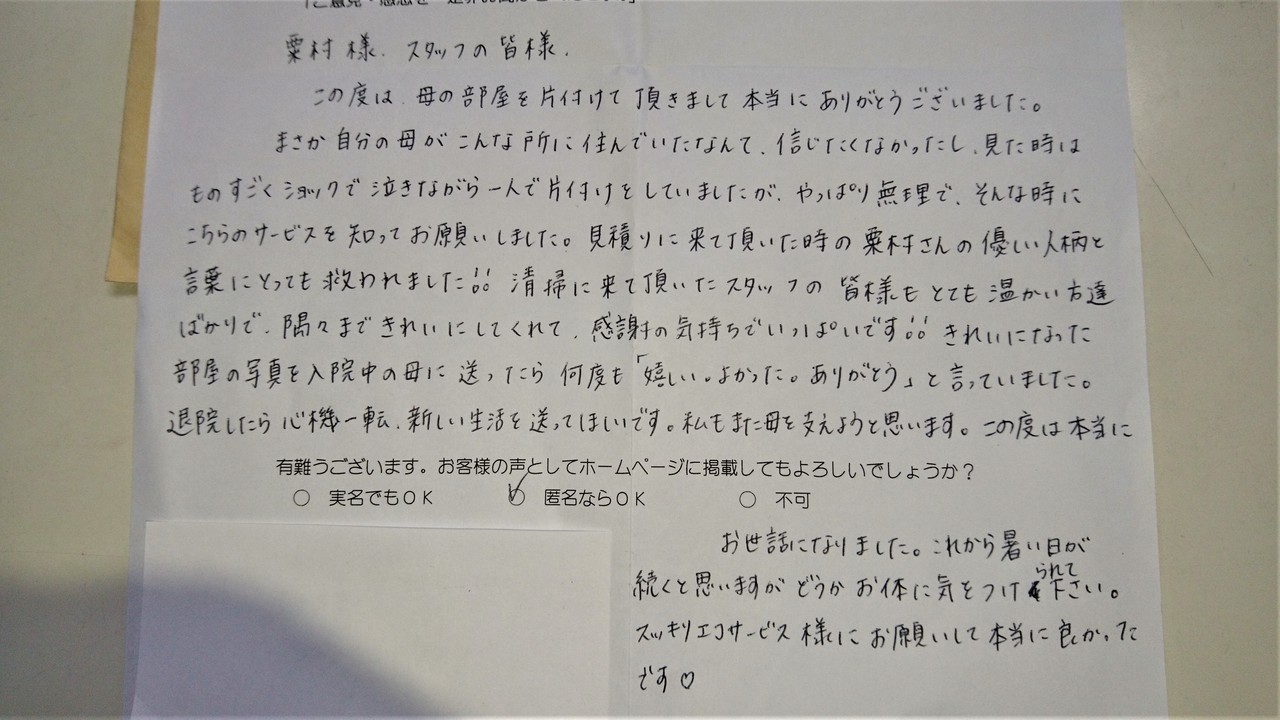 粟村様.スタッフの皆様.
この度は、母の部屋を片付けて頂きまして本当にありがとうございました。
まさか自分の母がこんな所に住んでいたなんて、信じたくなかったし、見た時は
ものすごくショックで泣きながら一人で片付けをしていましたが、やっぱり無理で、そんな時に
こちらのサービスを知ってお願いしました。見積りに来て頂いた時の粟村さんの優しい人柄と
言葉にとっても救われました!! 清掃に来て頂いたスタッフの皆様もとても温かい方達
ばかりで、隅々まできれいにしてくれて、感謝の気持ちでいっぱいです!! きれいになった
部屋の写真を入院中の母に送ったら何度も「嬉しい。よかった。ありがとう」と言っていました。
退院したら心機一転、新しい生活を送ってほしいです。私もまた母を支えようと思います。この度は本当に
有難うございます。お客様の声としてホームページに掲載してもよろしいでしょうか？
○ 実名でもOK ○ 匿名ならOK ○ 不可
お世話になりました。これから暑い日が
続くと思いますがどうかお体に気をつけられて下さい。
スッキリエコサービス様にお願いして本当に良かった
です♡